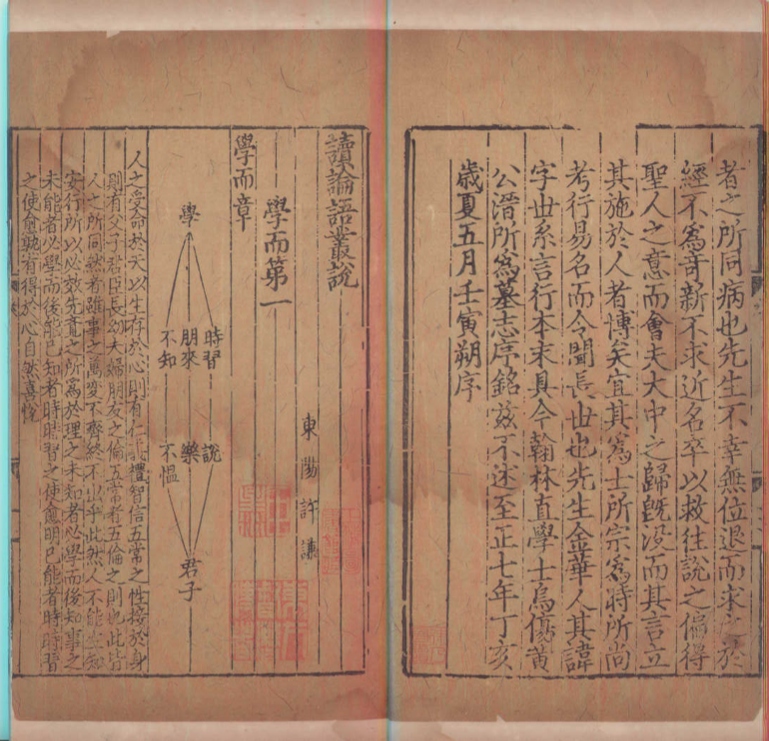 者之所同病也先生不幸無位退而求之於
經不爲奇新不求近名卒以救往說之偏得
聖人之意而會夫大中之歸旣沒而其言立
其施於人者博矣宜其爲士所宗爲時所尚
考行易名而令聞長世也先生金華人其諱
字世系言行本末具今翰林直學士烏傷黃
公潽所爲墓志序銘兹不述至正七年丁亥
歲夏五月壬寅朔序
讀論語叢說
東陽許謙
學而第一
學而章
時習 說
學 朋來 樂 君子
不知 不慍
人之受命於天以生存於心則有仁義禮智信五常之性接於身
則有父子君臣長幼夫婦朋友之倫五常者五倫之則也此皆
人之所同然者雖事之萬變不齊終不出乎此然人不能生知
安行所以必效先覺之所爲於理之未知者必學而後知事之
未能者必學而後能已知者時時習之使愈明已能者時時習
之使愈熟有得於心自然喜悅